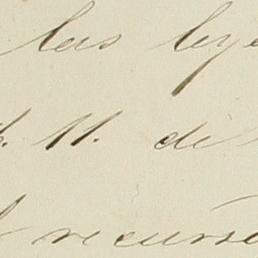 las leye
11. di
recurso